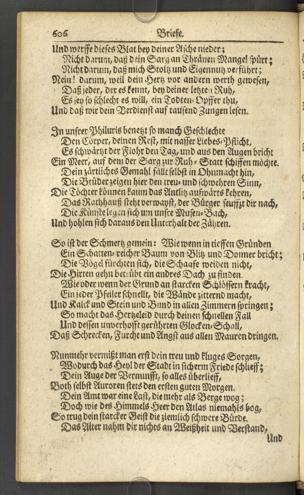 606 Briefe.
Und werffe dieses Blat bey deiner Asche nieder;
Nicht darum, daß dein Sarg an Thränen Mangel spürt;
Nicht darum, daß mich Stoltz und Eigennutz verführt;
Nein! darum, weil dein Hertz vor andern werth gewesen,
Daß jeder, der es kennt, bey deiner letzten Ruh,
Es sey so schlecht es will, ein Todten-Opffer thu,
Und daß wir dein Verdienst auf tausend Zungen lesen.
In unsrer Philuris benetzt so manch Geschlechte
Den Cörper, deinen Rest, mit nasser Liebes-Pflicht,
Es schwärtzt der Flohr den Tag, und aus den Augen bricht
Ein Meer, auf dem der Sarg zur Ruh-Statt schiffen möchte.
Dein zärtliches Gemahl fällt selbst in Ohnmacht hin,
Die Brüder zeigen hier den treu- und schwehren Sinn,
Die Töchter können kaum das Antlitz aufwärts kehren,
Das Rathhauß steht verwayst, der Bürger seuffzt dir nach,
Die Künste legen sich um unsre Musen-Bach,
Und hohlen sich daraus den Unterhalt der Zähren.
So ist der Schmertz gemein: Wie wenn in tieffen Gründen
Ein Schatten-reicher Baum von Blitz und Donner bricht;
Die Vögel flüchten sich, die Schaafe weiden nicht,
Die Hirten gehn betrübt ein andres Dach zu finden.
Wie oder wenn der Grund an starcken Schlössern kracht,
Ein jeder Pfeiler schnellt, die Wände zitternd macht,
Und Kalck und Stein und Bund in allen Zimmern springen;
So macht das Hertzeleid durch deinen schnellen Fall
Und dessen unverhofft gerührten Glocken-Schall,
Daß Schrecken, Furcht und Angst aus allen Mauren dringen.
Nunmehr vermißt man erst dein treu und kluges Sorgen,
Wodurch das Heyl der Stadt in sicherm Friede schlieff;
Dein Auge der Vernunfft, so alles überlieff,
Both selbst Auroren stets den ersten guten Morgen.
Dein Amt war eine Last, die mehr als Berge wog;
Doch wie des Himmels Heer den Atlas niemahls bog,
So trug dein starcker Geist die ziemlich schwere Bürde.
Das Alter nahm dir nichts an Weißheit und Verstand,
Und